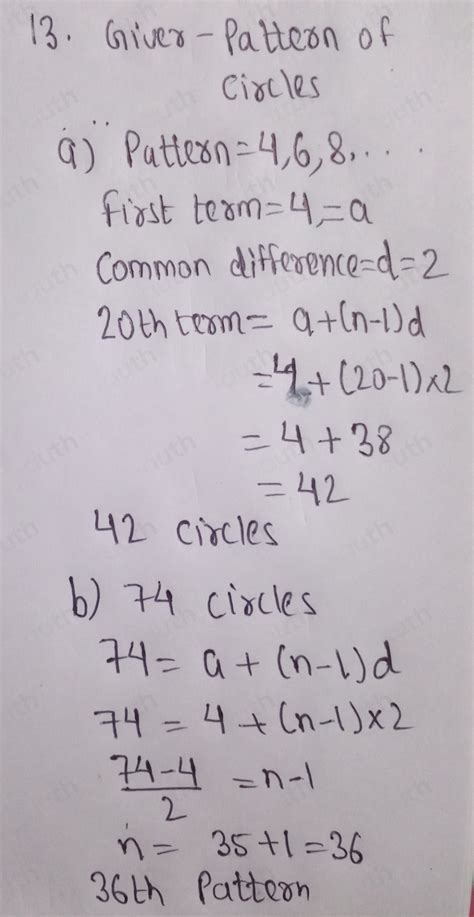 13. Given - Pattern of
circles
a) Pattern = 4, 6, 8, . . . .
first term = 4, = a
Common difference = d = 2
20th term = a + (n-1)d
= 4 + (20-1)×2
= 4 + 38
= 42
42 circles
b) 74 circles
74 = a + (n-1)d
74 = 4 + (n-1)×2
74-4
2
= n-1
n = 35+1 = 36
36th Pattern